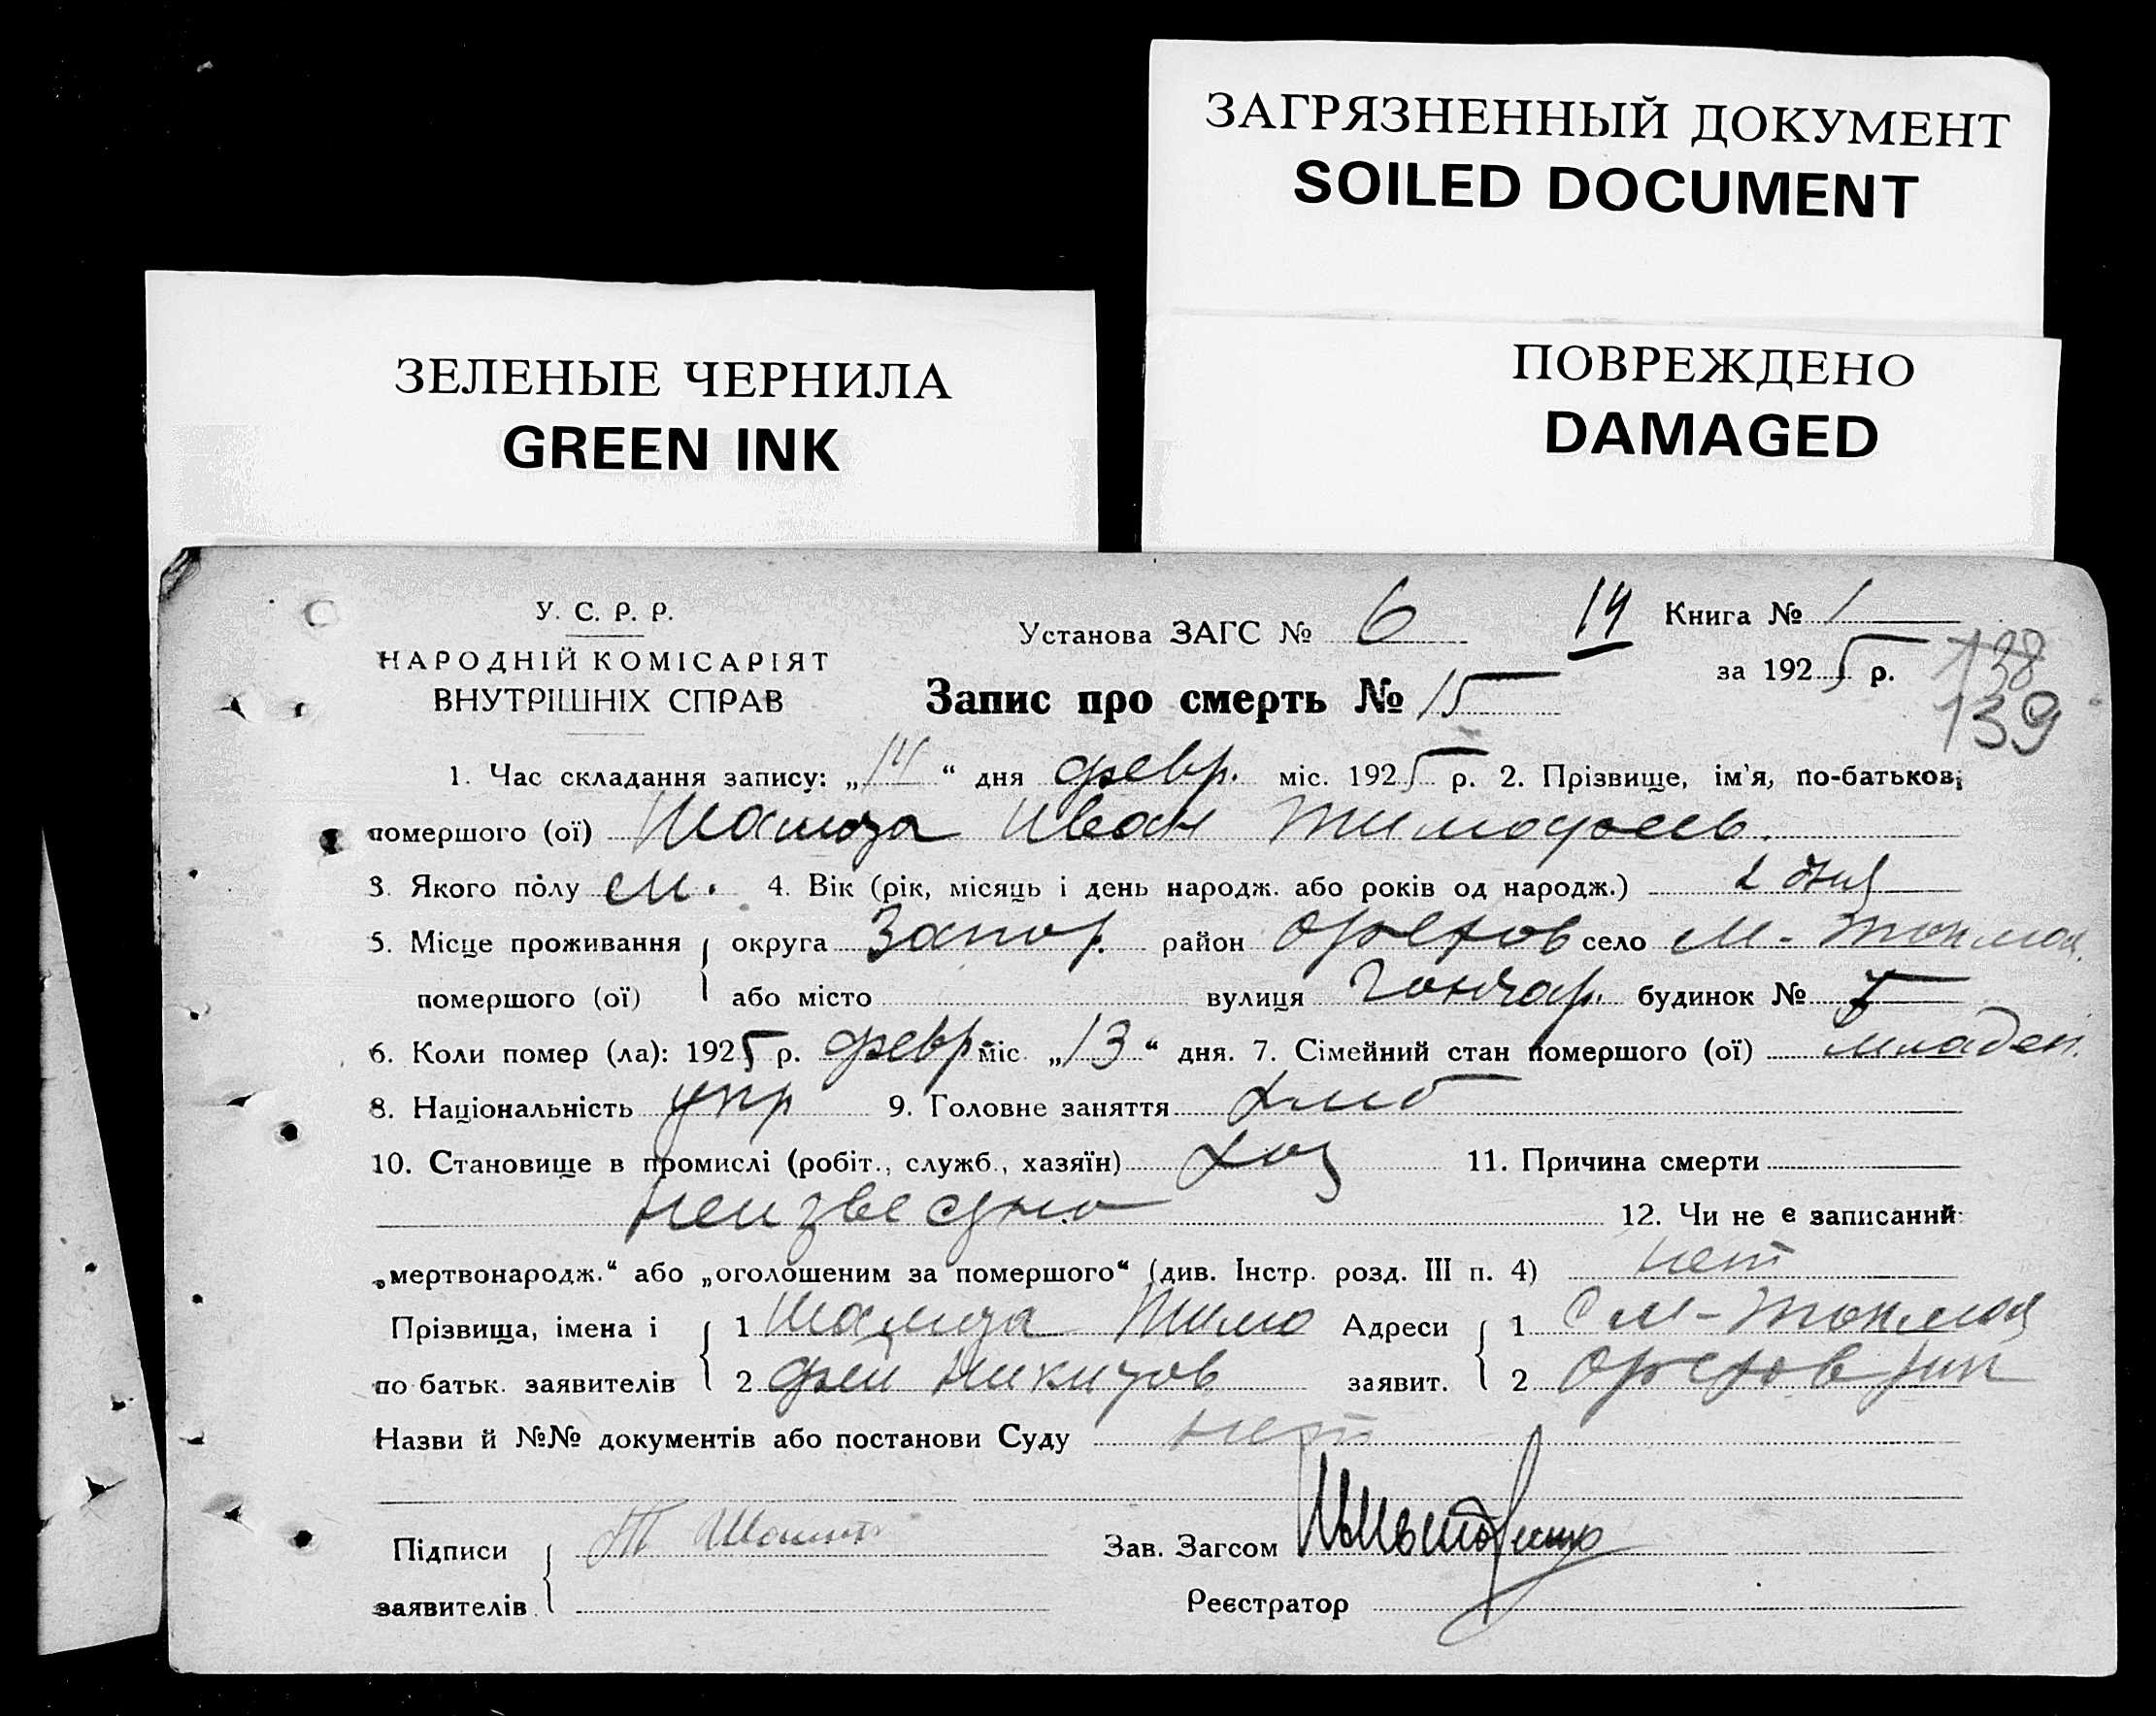 ЗАГРЯЗНЕННЫЙ ДОКУМЕНТ
SOILED DOCUMENT
ЗЕЛЕНЫЕ ЧЕРНИЛА
GREEN INK
ПОВРЕЖДЕНО
DAMAGED
У. С. Р. Р.
НАРОДНІЙ КОМІСАРІЯТ
ВНУТРІШНІХ СПРАВ
Установа ЗАГС № 6
14
Книга № 1
за 1925 р.
138
139
Запис про смерть № 15
1. Час складання запису: „14“ дня февр. міс. 1925 р. 2. Прізвище, ім'я, по-батькові
помершого (ої) Иван Тимофеев.
3. Якого полу м. 4. Вік (рік, місяць і день народж. або років од народж.) 2 дня
5. Місце проживання помершого (ої) округа Запор. район Орехов село М-Токмач.
або місто вулиця Гончар. будинок № 5
6. Коли помер (ла): 1925 р. февр міс „13“ дня. 7. Сімейний стан помершого (ої) младен.
8. Національність укр 9. Головне заняття хлеб
10. Становище в промислі (робіт., служб., хазяїн) хоз 11. Причина смерти
неизвестно 12. Чи не є записаний
„мертвонародж.“ або „оголошеним за помершого“ (див. Інстр. розд. III п. 4) нет
Прізвища, імена і 1 Тимо Адреси 1 С М-Токмач
по батьк. заявителів 2 фей Никитов заявит. 2 Орехов рик
Назви й №№ документів або постанови Суду нет
Підписи Т
Зав. Загсом
заявителів
Реєстратор